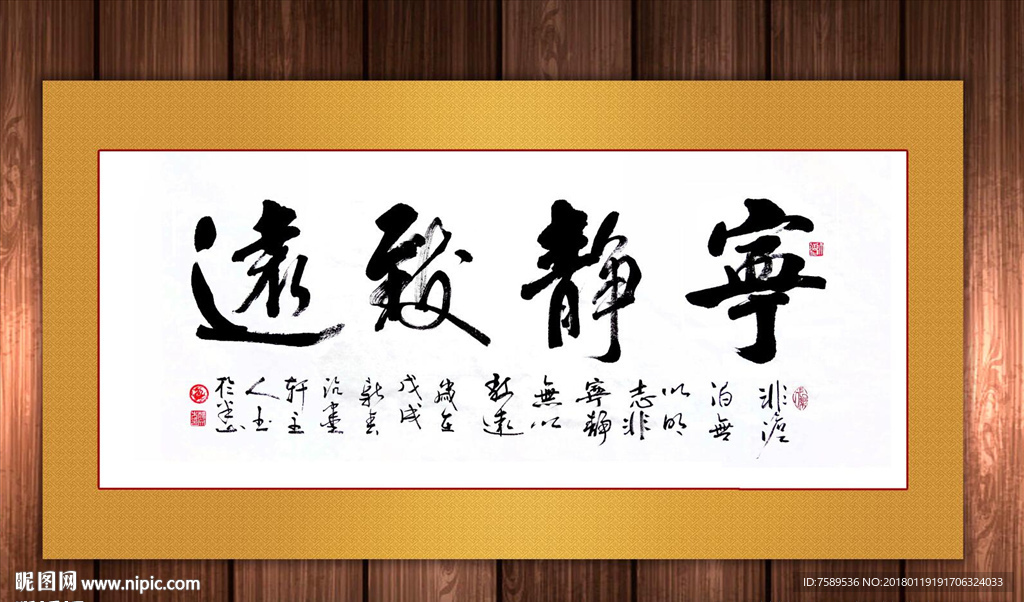 寧靜致遠
非澹
泊無
以明
志非
寧靜
無以
致遠
歲在
戊戌
新春
轩主
人书
昵图网 www.nipic.com
ID:7589536 NO:20180119191706324033